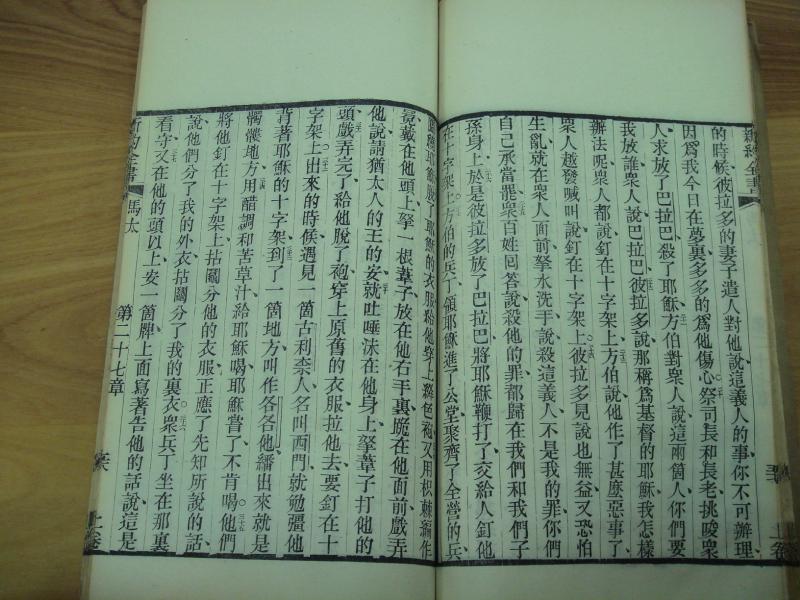 新約全書
上卷
的時候彼拉多的妻子遣人對他說這義人的事你不可辦理
因爲我今日在夢裏多多的爲他傷心祭司長和長老挑唆衆
人求放了巴拉巴殺了耶穌方伯對衆人說這兩箇人你們要
我放誰衆人說巴拉巴彼拉多說那稱爲基督的耶穌我怎樣
辦法呢衆人都說釘在十字架上方伯說他作了甚麼惡事了
衆人越發喊叫說釘在十字架上彼拉多見說也無益又恐怕
生亂就在衆人面前拏水洗手說殺這義人不是我的罪你們
自己承當罷衆百姓回答說殺他的罪都歸在我們和我們子
孫身上於是彼拉多放了巴拉巴將耶穌鞭打了交給人釘他
在十字架上方伯的兵丁領耶穌進了公堂聚齊了全營的兵
耶穌脫了耶穌的衣服給他穿上絳色袍又用枳棘編作
冕戴在他頭上拏一根葦子放在他右手裏跪在他面前戲弄
他說請猶太人的王的安就吐唾沫在他身上拏葦子打他的
頭戲弄完了給他脫了袍穿上原舊的衣服拉他去要釘在十
字架上出來的時候遇見一箇古利奈人名叫西門就勉彊他
背著耶穌的十字架到了一箇地方叫作各各他繙出來就是
髑髏地方用醋調和苦草汁給耶穌喝耶穌嘗了不肯喝他們
將他釘在十字架上拈鬮分他的衣服正應了先知所說的話
說他們分了我的外衣拈鬮分了我的裏衣衆兵丁坐在那裏
看守又在他的頭以上安一箇牌上面寫著告他的話說這是
新約全書
馬太
第二十七章
上卷